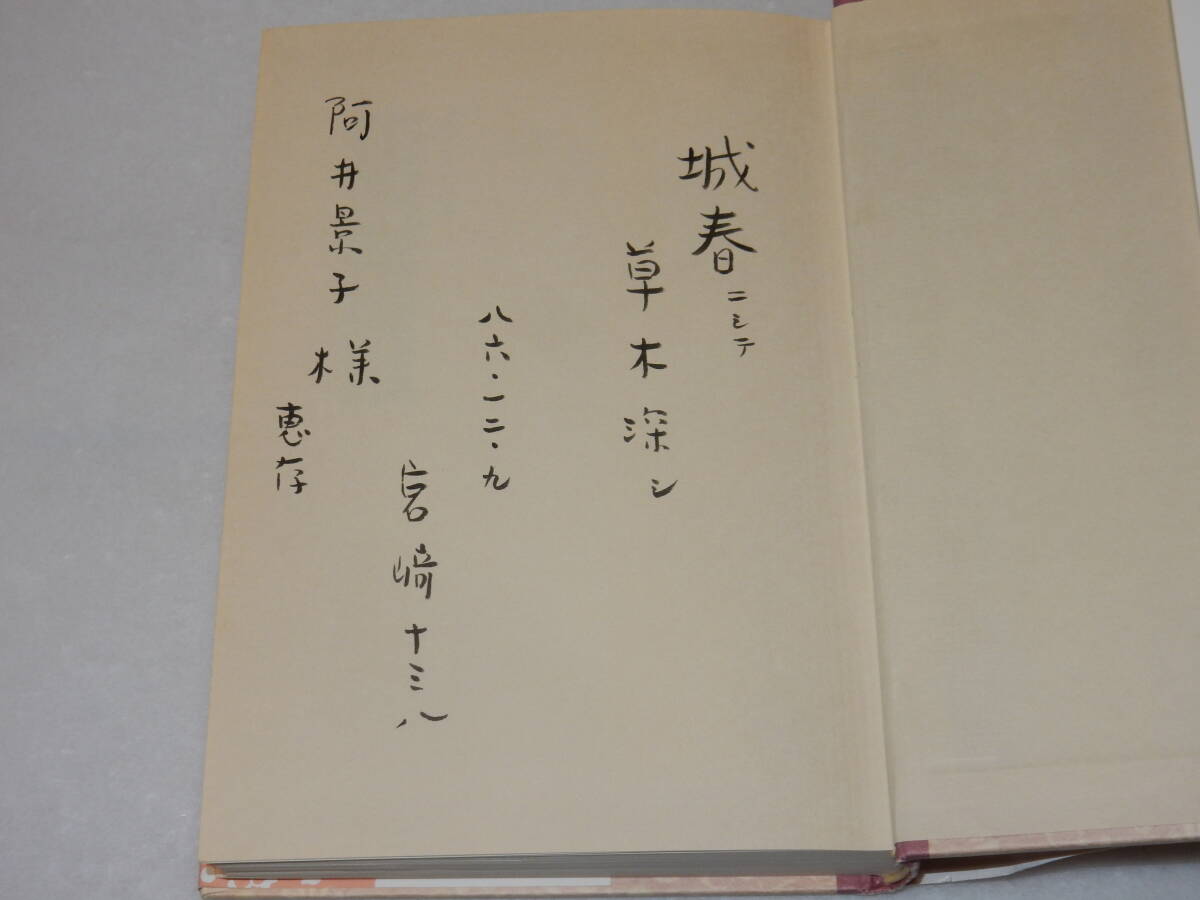 城春ニシテ
草木深シ
八六・一二・九
宮崎十三八
阿井景子様
恵存